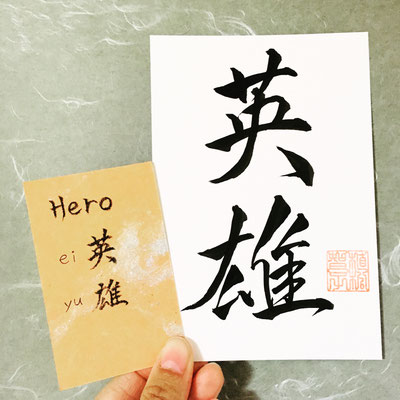 Hero
ei 英
yu 雄
英
雄